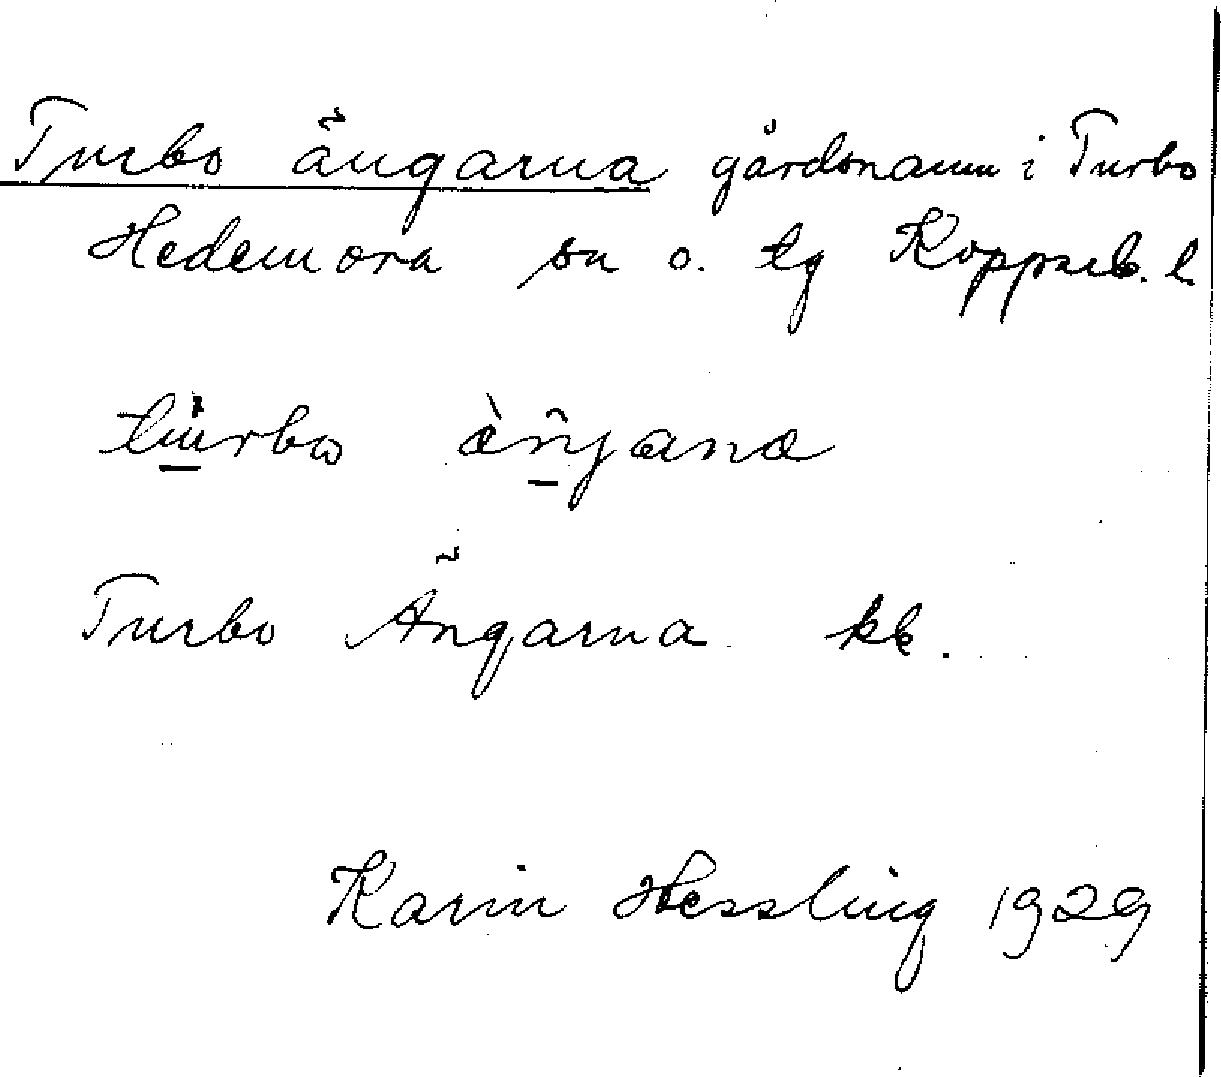 Turbo ängarna gårdsnamn i Turbo
Hedemora sn o. tg Kopparb. l.
Turbo Ängarna kb.
Karin Hessling 1929